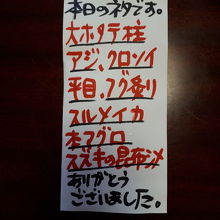 本日のネタです。
大ホタテ柱
アジ、クロソイ
平目、フグ炙り
スルメイカ
本マグロ
スズキの昆布〆
ありがとう
ございました。